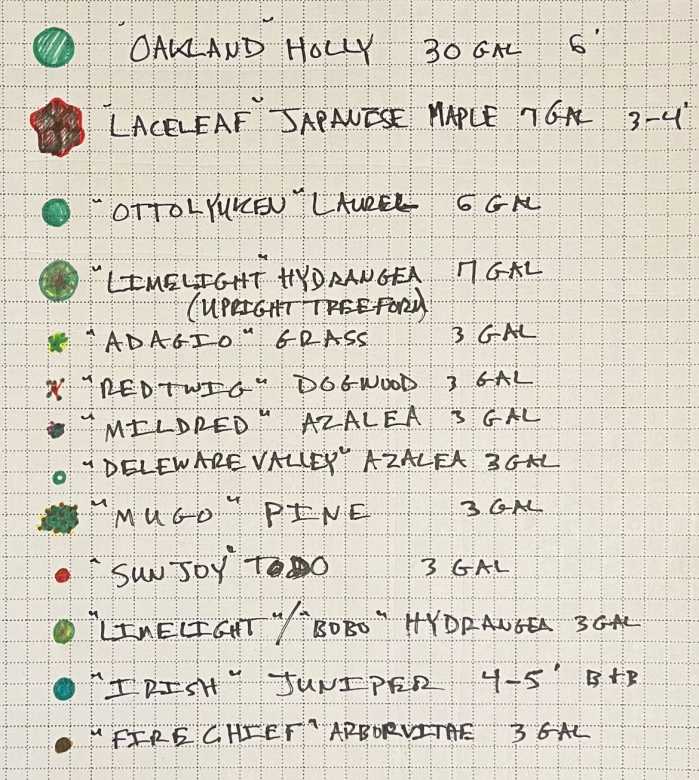 "OAKLAND" HOLLY 30 GAL 6'
"LACELEAF" JAPANESE MAPLE 7 GAL 3-4'
"OTTOLYUKEN" LAUREL 6 GAL
"LIMELIGHT" HYDRANGEA 7 GAL
(UPRIGHT TREE FORM)
"ADAGIO" GRASS 3 GAL
"REDTWIG" DOGWOOD 3 GAL
"MILDRED" AZALEA 3 GAL
"DELEWARE VALLEY" AZALEA 3 GAL
"MUGO" PINE 3 GAL
"SUNJOY" TODO 3 GAL
"LIMELIGHT"/"BOBO" HYDRANGEA 3 GAL
"IRISH" JUNIPER 4-5' B+B
"FIRE CHIEF" ARBORVITAE 3 GAL